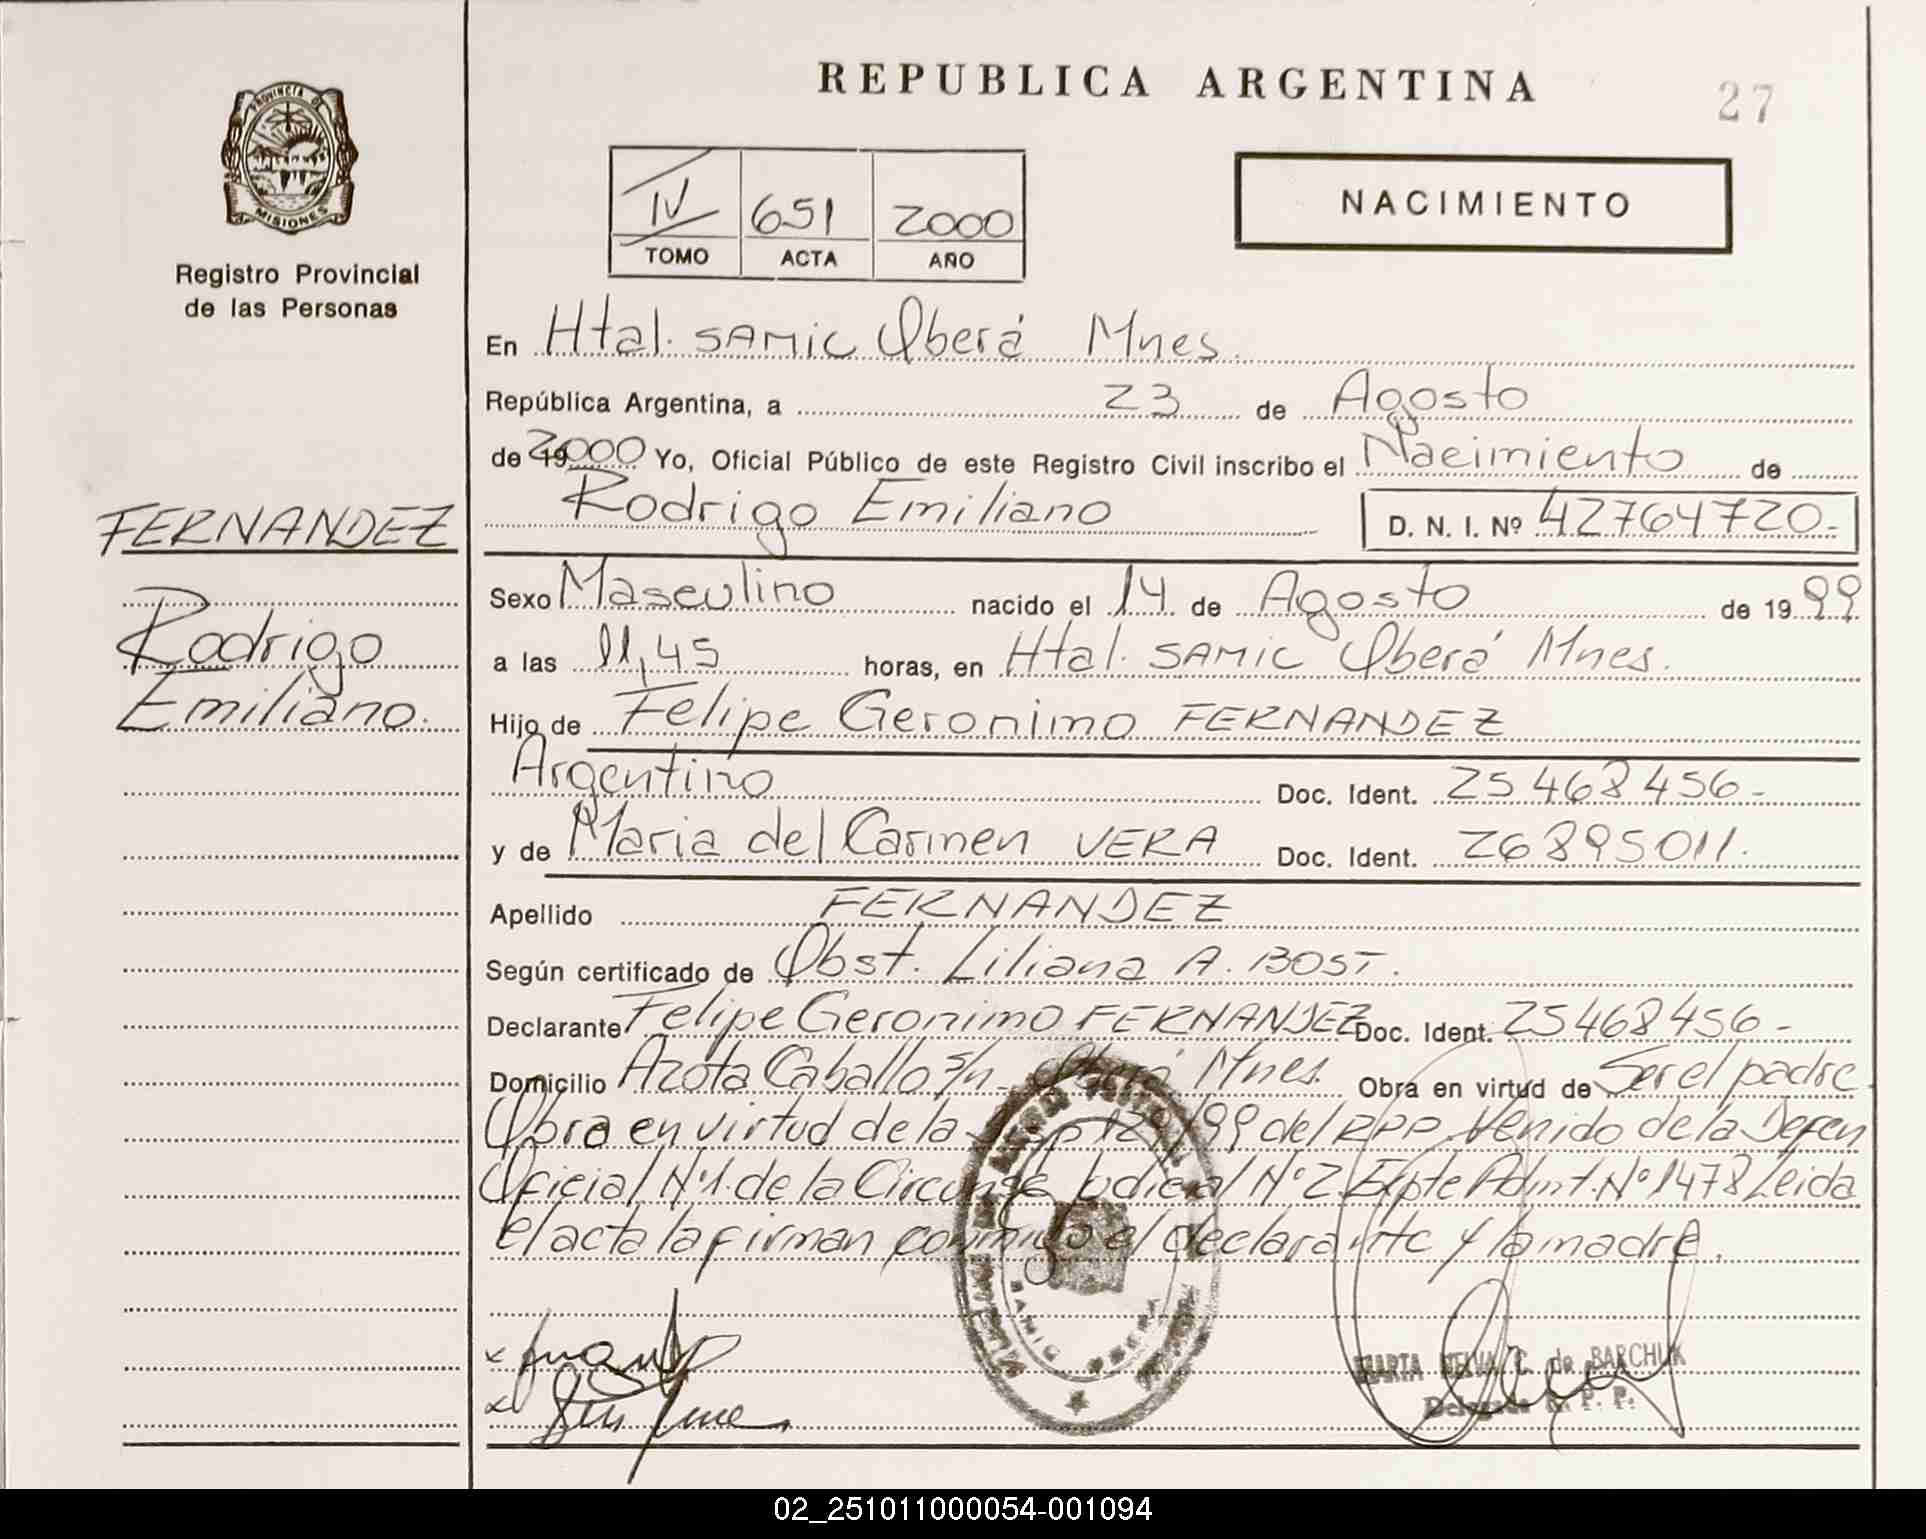 REPUBLICA ARGENTINA
27
PROVINCIA DE
MISIONES
Registro Provincial
de las Personas
IV 651 2000
TOMO ACTA AÑO
NACIMIENTO
En Htal. SAMIC Oberá Mnes.
República Argentina, a 23 de Agosto
de 19 2000 Yo, Oficial Público de este Registro Civil inscribo el Nacimiento de
Rodrigo Emiliano D. N. I. Nº 42764720-
FERNANDEZ
Rodrigo
Emiliano.
Sexo Masculino nacido el 14 de Agosto de 19 99
a las 11,45 horas, en Htal. SAMIC Oberá Mnes.
Hijo de Felipe Geronimo FERNANDEZ
Argentino Doc. Ident. 25468456-
y de Maria del Carmen VERA Doc. Ident. 26895011.
Apellido FERNANDEZ
Según certificado de Obst. Liliana A. BOST.
Declarante Felipe Geronimo FERNANDEZ Doc. Ident. 25468456-
Domicilio Azota Caballo s/n Oberá Mnes. Obra en virtud de Ser el padre
Obra en virtud de la 129/99 del RPP. Venido de la Defen
Oficial Nº1. de la Circunsc Judicial Nº2. Expte Admt. Nº1478 Leida
el acta la firman conmigo el declarante y la madre.
MARTA SELVA C. de BARCHUK
Delegada R. P. P.
02_251011000054-001094